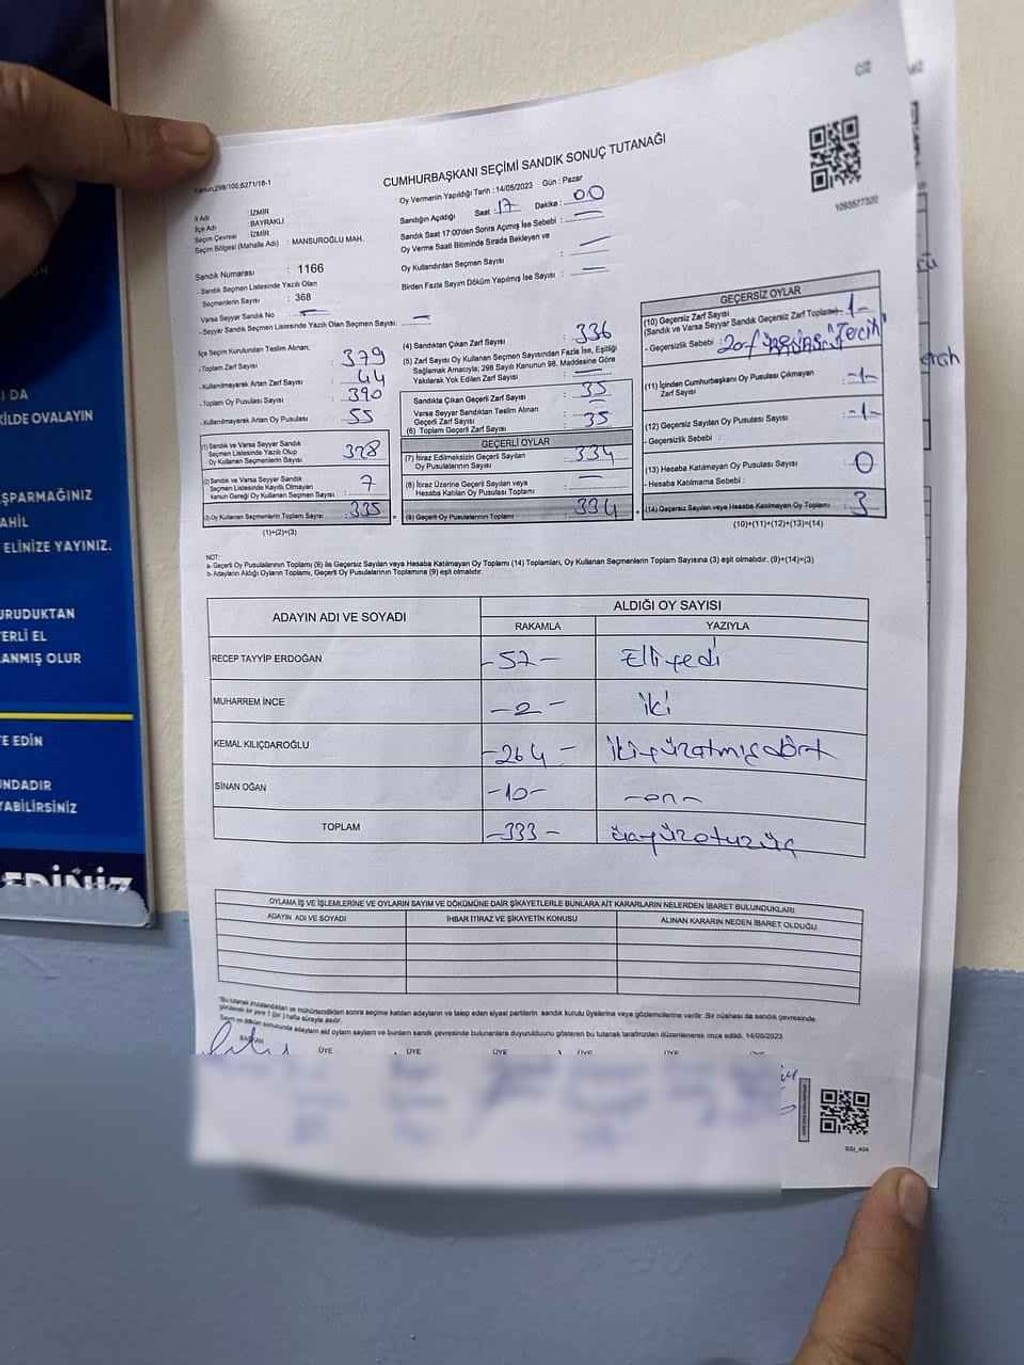 CUMHURBAŞKANI SEÇİMİ SANDIK SONUÇ TUTANAĞI
Oy Vermenin Yapıldığı Tarih : 14/05/2023 Gün : Pazar
Sandığın Açadığı Saat : 17 Dakika : 00
Sandık Saat 17:00'den Sonra Açımış İse Sebebi : —
Oy Verme Saati Bitiminde Sırada Bekleyen ve
Oy Kullandırılan Seçmen Sayısı : —
Birden Fazla Sayım Döküm Yapılmış İse Sayısı : —
1093577320
İl Adı : İZMİR
İlçe Adı : BAYRAKLI
Seçim Çevresi : İZMİR
Seçim Bölgesi (Mahalle Adı) : MANSUROĞLU MAH.
Sandık Numarası : 1166
- Sandık Seçmen Listesinde Yazılı Olan
Seçmenlerin Sayısı : 368
Varsa Seyyar Sandık No : —
- Seyyar Sandık Seçmen Listesinde Yazılı Olan Seçmen Sayısı: —
İlçe Seçim Kurulundan Teslim Alınan;
- Toplam Zarf Sayısı : 379
- Kullanılmayarak Artan Zarf Sayısı : 44
- Toplam Oy Pusulası Sayısı : 390
- Kullanılmayarak Artan Oy Pusulası : 55
(1) Sandık ve Varsa Seyyar Sandık
Seçmen Listesinde Yazılı Olup
Oy Kullanan Seçmenlerin Sayısı : 328
(2) Sandık ve Varsa Seyyar Sandık
Seçmen Listesinde Kayıtlı Olmayan
Kanun Gereği Oy Kullanan Seçmen Sayısı : 7
(3) Oy Kullanan Seçmenlerin Toplam Sayısı : 335
(1)+(2)=(3)
(4) Sandıktan Çıkan Zarf Sayısı : 336
(5) Zarf Sayısı Oy Kullanan Seçmen Sayısından Fazla İse, Eşitliği
Sağlamak Amacıyla; 298 Sayılı Kanunun 98. Maddesine Göre
Yakılarak Yok Edilen Zarf Sayısı : —
Sandıkta Çıkan Geçerli Zarf Sayısı : 35
Varsa Seyyar Sandıktan Teslim Alınan
Geçerli Zarf Sayısı : —
(6) Toplam Geçerli Zarf Sayısı : 35
GEÇERLİ OYLAR
(7) İtiraz Edilmeksizin Geçerli Sayılan
Oy Pusulalarının Sayısı : 334
(8) İtiraz Üzerine Geçerli Sayılan veya
Hesaba Katılan Oy Pusulası Toplamı : —
(9) Geçerli Oy Pusulalarının Toplamı : 334
GEÇERSİZ OYLAR
(10) Geçersiz Zarf Sayısı
(Sandık ve Varsa Seyyar Sandık Geçersiz Zarf Toplamı) : 1-
- Geçersizlik Sebebi : Tercih
(11) İçinden Cumhurbaşkanı Oy Pusulası Çıkmayan
Zarf Sayısı : -1-
(12) Geçersiz Sayılan Oy Pusulası Sayısı : -1-
- Geçersizlik Sebebi :
(13) Hesaba Katılmayan Oy Pusulası Sayısı : 0
- Hesaba Katılmama Sebebi :
(14) Geçersiz Sayılan veya Hesaba Katılmayan Oy Toplamı : 3
(10)+(11)+(12)+(13)=(14)
NOT:
a- Geçerli Oy Pusulalarının Toplamı (9) ile Geçersiz Sayılan veya Hesaba Katılmayan Oy Toplamı (14) Toplamları, Oy Kullanan Seçmenlerin Toplam Sayısına (3) eşit olmalıdır. (9)+(14)=(3)
b- Adayların Aldığı Oyların Toplamı, Geçerli Oy Pusulalarının Toplamına (9) eşit olmalıdır.
ADAYIN ADI VE SOYADI
ALDIĞI OY SAYISI
RAKAMLA YAZIYLA
RECEP TAYYİP ERDOĞAN -57- Elliyedi
MUHARREM İNCE -2- iki
KEMAL KILIÇDAROĞLU -264- ikiyüzatmışdört
SİNAN OĞAN -10- -on-
TOPLAM -333- üçyüzotuzüç
OYLAMA İŞ VE İŞLEMLERİNE VE OYLARIN SAYIM VE DÖKÜMÜNE DAİR ŞİKAYETLERLE BUNLARA AİT KARARLARIN NELERDEN İBARET BULUNDUKLARI
ADAYIN ADI VE SOYADI İHBAR İTİRAZ VE ŞİKAYETİN KONUSU ALINAN KARARIN NEDEN İBARET OLDUĞU
BAŞKAN ÜYE ÜYE ÜYE ÜYE ÜYE
I DA
KİLDE OVALAYIN
ŞPARMAĞINIZ
AHİL
ELİNİZE YAYINIZ.
URUDUKTAN
ERLİ EL
ANMIŞ OLUR
E EDİN
NDADIR
YABİLİRSİNİZ
EDİNİZ